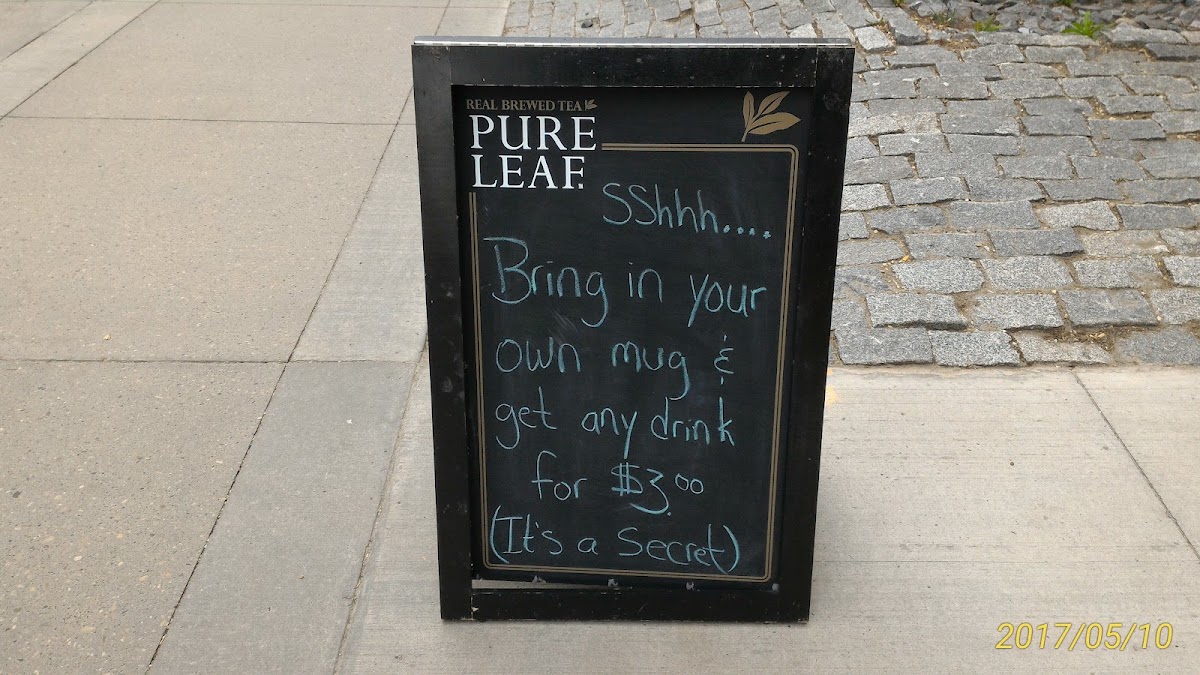 REAL BREWED TEA
PURE
LEAF
SShhh....
Bring in your
own mug &
get any drink
for $3.00
(It's a Secret)
2017/05/10